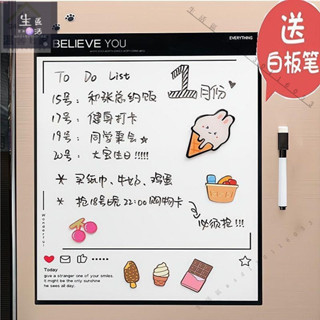 生匠
生活
BELIEVE YOU
EVERYTHING
送
白板笔
To Do List
1月份
15号：和张总约饭
17号：健身打卡
19号：同学聚会☆
20号：大宝生日!!!!!
* 买纸巾、牛奶、鸡蛋
* 抢18号晚22:00购物卡
必须抢!!!
Wonderful
Today
give a stranger one of your smiles.
it might be the only sunshine
he sees all day.